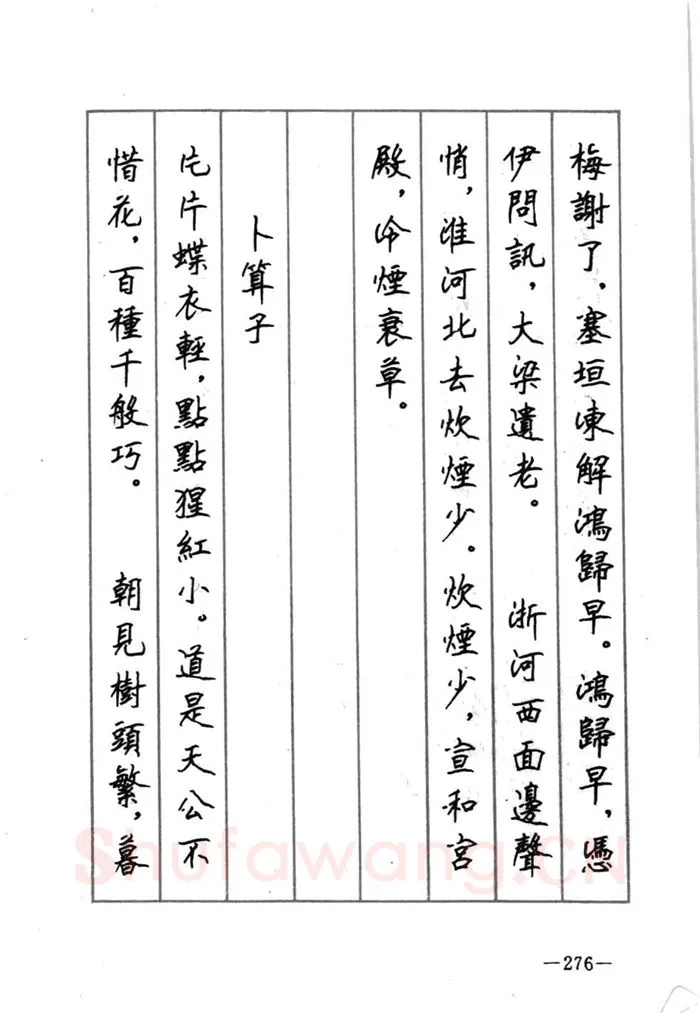 梅謝了，塞垣凍解鴻歸早。鴻歸早，憑
伊問訊，大梁遺老。　浙河西面邊聲
悄，淮河北去炊煙少。炊煙少，宣和宮
殿，冷煙衰草。
卜算子
片片蝶衣輕，點點猩紅小。道是天公不
惜花，百種千般巧。　朝見樹頭繁，暮
Shufawang.CN
—276—